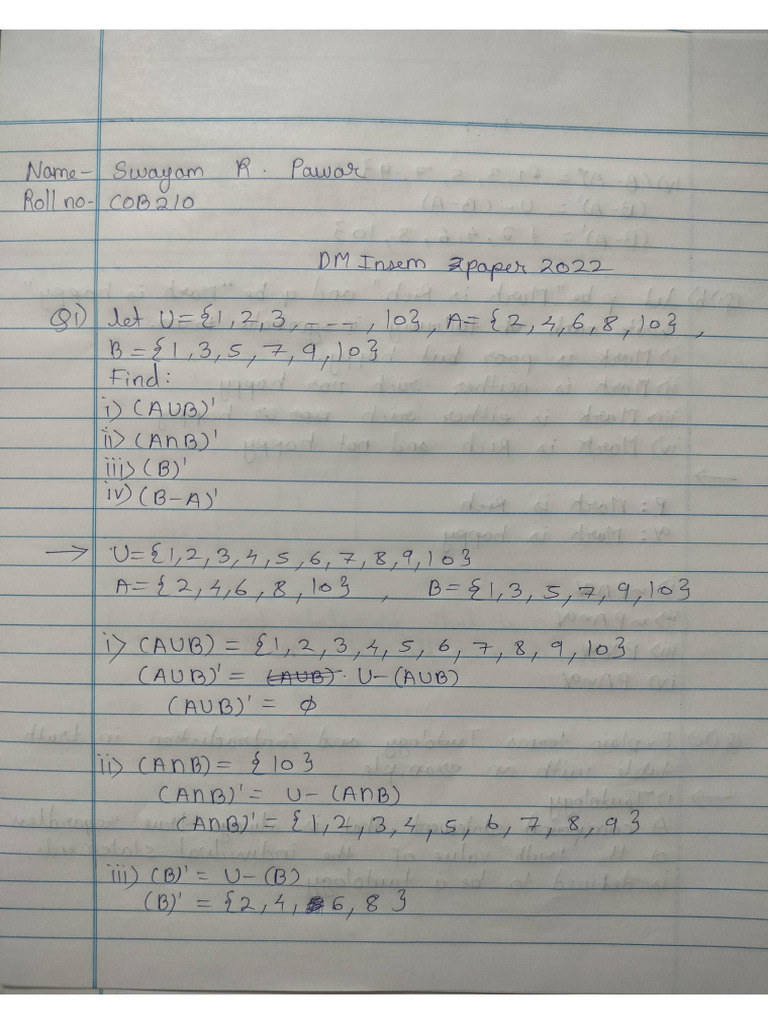 Name- Swayam R. Pawar
Roll no- COB210
DM Insem paper 2022
Q1) let U={1,2,3,----,10}, A={2,4,6,8,10},
B={1,3,5,7,9,10}
Find:
i) (A∪B)'
ii) (A∩B)'
iii) (B)'
iv) (B-A)'
→ U={1,2,3,4,5,6,7,8,9,10}
A={2,4,6,8,10}, B={1,3,5,7,9,10}
i) (A∪B) = {1,2,3,4,5,6,7,8,9,10}
(A∪B)' = (A∪B). U-(A∪B)
(A∪B)' = ϕ
ii) (A∩B) = {10}
(A∩B)' = U-(A∩B)
(A∩B)' = {1,2,3,4,5,6,7,8,9}
iii) (B)' = U-(B)
(B)' = {2,4,6,8}